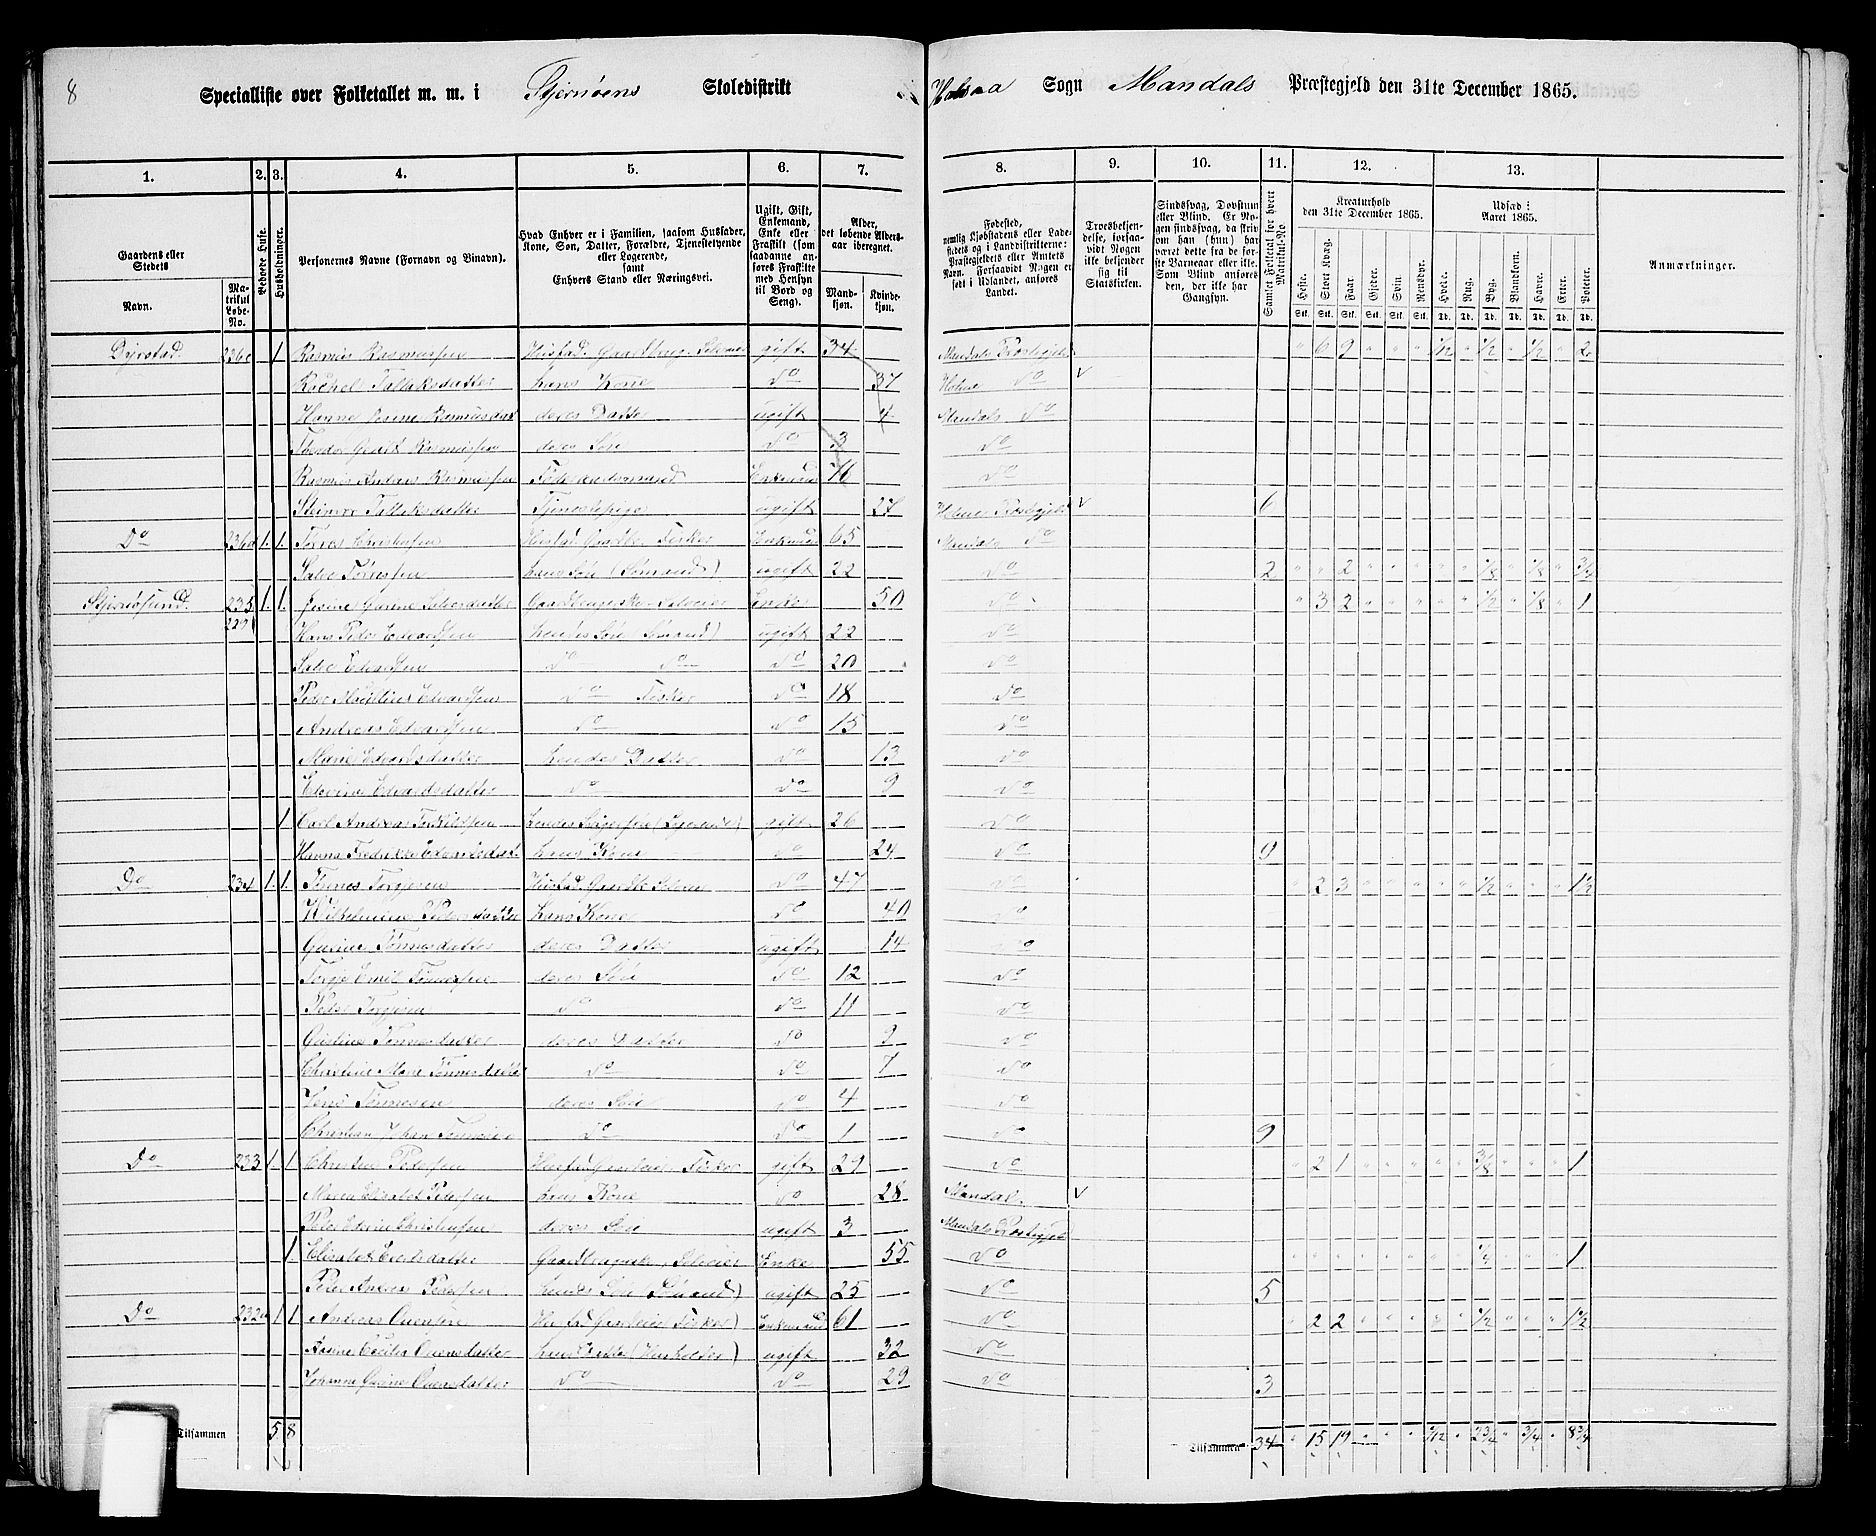 8
Specialliste over Folketallet m. m. i Stjernøens Skoledistrikt
Halsaa Sogn Mandals Præstegjeld den 31te December 1865.
1. 2. 3. 4. 5. 6. 7. 8. 9. 10. 11. 12. 13.
Gaardens eller Stedets
Navn.
Matrikul Løbe-No.
Beboede Huse.
Husholdninger.
Personernes Navne (Fornavn og Tilnavn).
Hvad Enhver er i Familien, saasom Husfader, Kone, Søn, Datter, Forældre, Tjenestetyende eller Logerende, samt Enhvers Stand eller Næringsvei.
Ugift, Gift, Enkemand, Enke eller Fraskilt (som saadanne anføres Fraskilte med Hensyn til Bord og Seng).
Alder, det løbende Aldersaar iberegnet.
Mandkjøn.
Kvindekjøn.
Fødested, nemlig Kjøbstadens eller Ladestedets og i Landdistrikterne: Præstegjeldets eller Amtets Navn. Forsaavidt Nogen er født i Udlandet, anføres Landet.
Troesbekjendelse, forsaavidt Nogen ikke bekjender sig til Statskirken.
Sindssvag, Døvstum eller Blind. Er Nogen sindssvag, da skriv om han (hun) har været dette fra de første Barneaar eller ikke. Som Blind anføres den, der ikke har Gangsyn.
Samlet Folketal for hvert Matrikul-No
Kreaturhold den 31te December 1865.
Heste. Stort Kvæg. Faar. Gjeder. Svin. Rensdyr.
Stk. Stk. Stk. Stk. Stk. Stk.
Udsæd i Aaret 1865.
Hvede. Rug. Byg. Blandkorn. Havre. Erter. Poteter.
Td. Td. Td. Td. Td. Td. Td.
Anmærkninger.
Dyrstad 236c 1 Rasmus Rasmussen Husfad. Gaardbrug. Selveier gift 34 Mandals Præstegjeld " 6 9 " " " 1/12 " 1/2 " 1/2 " 2
Rachel Tallaksdatter hans Kone Do 37 Holme Do v
Hanne Rasmusdat deres Datter ugift 4 Mandals Do
Rasmussen deres Søn Do 3 Do
Rasmus Andreas Rasmussen Føderaadsmand Enkemand 76 Do
Tallaksdatter Tjenestepige ugift 27 Holme Præstegjeld v 6
Do 236d 1. 1. Tørres Christensen Husfad. Gaardbr. Fisker Enkemand 65 Mandals Do
Salve Tørressen hans Søn (Sømand) ugift 22 Do 2 " " 2 " " " " " 1/8 " 1/8 " 3/4
Stjernøsund 235 1. 1. Jesine Salvesdatter Gaardbrugerske Selveier Enke 50 Do " 3 2 " " " " " 1/2 " 1/8 " 1
229 Hans Peder Edvardsen hendes Søn (Sømand) ugift 22 Do
Salve Edvardsen Do Do Do 20 Do
Peder Edvardsen Do Fisker Do 18 Do
Andreas Edvardsen Do Do 15 Do
Marie Edvardsdatter hendes Datter Do 13 Do
Edvardsdatter Do Do 9 Do
1 Carl Andreas Torkildsen hendes (Sømand) gift 26 Do
Hanna Fredrikke Edvardsdat. hans Kone Do 24 Do 9
Do 234 1. 1. Tønnes Torgjesen Husfad. Gaardbr. Selveier Do 47 Do " 2 3 " " " " " 1/2 " " " 1 1/2
Wilhelmine Pedersdatter hans Kone Do 40 Do
Tønnesdatter deres Datter ugift 14 Do
Torgje Emil Tønnessen deres Søn Do 12 Do
Peder Torgjesen Do Do 11 Do
Tønnesdatter deres Datter Do 9 Do
Christine Marie Tønnesdatter Do Do 7 Do
Jens Tønnesen deres Søn Do 4 Do
Christian Johan Tønnesen Do Do 1 Do 9
Do 233 1. 1 Christen Pedersen Husfad. Gaardeier Fisker gift 29 Do " 2 1 " " " " " 3/8 " " " 1
Maren Elisabet Pedersen hans Kone Do 28 Mandal. v
Peder Edvin Christensen deres Søn ugift 3 Mandals Præstegjeld
1 Elisabet datter Gaardbrugerske, Selveier Enke 55 Do " " " " " " " " 1/4 " " " 1
Peder Andreas Pedersen hendes Søn (Sømand) ugift 25 Do 5
Do 232a 1 1 Andreas Ouensen Husfad. Gaardeier Fisker Enkemand 61 Do " 2 2 " " " " " 1/2 " " " 1 1/2
Anne Cecilie Ouensdatter hans Datter (Husholder) ugift 32 Do
Johanne Ouensdatter Do Do 29 Do 3
Tilsammen 5 8
Tilsammen 34 " 15 19 1/12 " 2 3/4 " 3/4 " 8 3/4